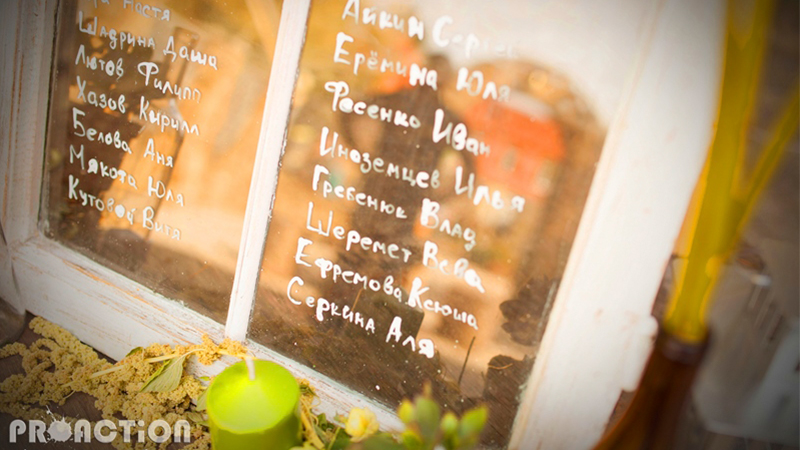 Настя
Шадрина Даша
Лютов Филипп
Хазов Кирилл
Белова Аня
Мякота Юля
Кутовой Витя
Айкин Сергей
Ерёмина Юля
Фасенко Иван
Иноземцев Илья
Гребенюк Влад
Шеремет Сева
Ефремова Ксюша
Серкина Аля
PROACTION